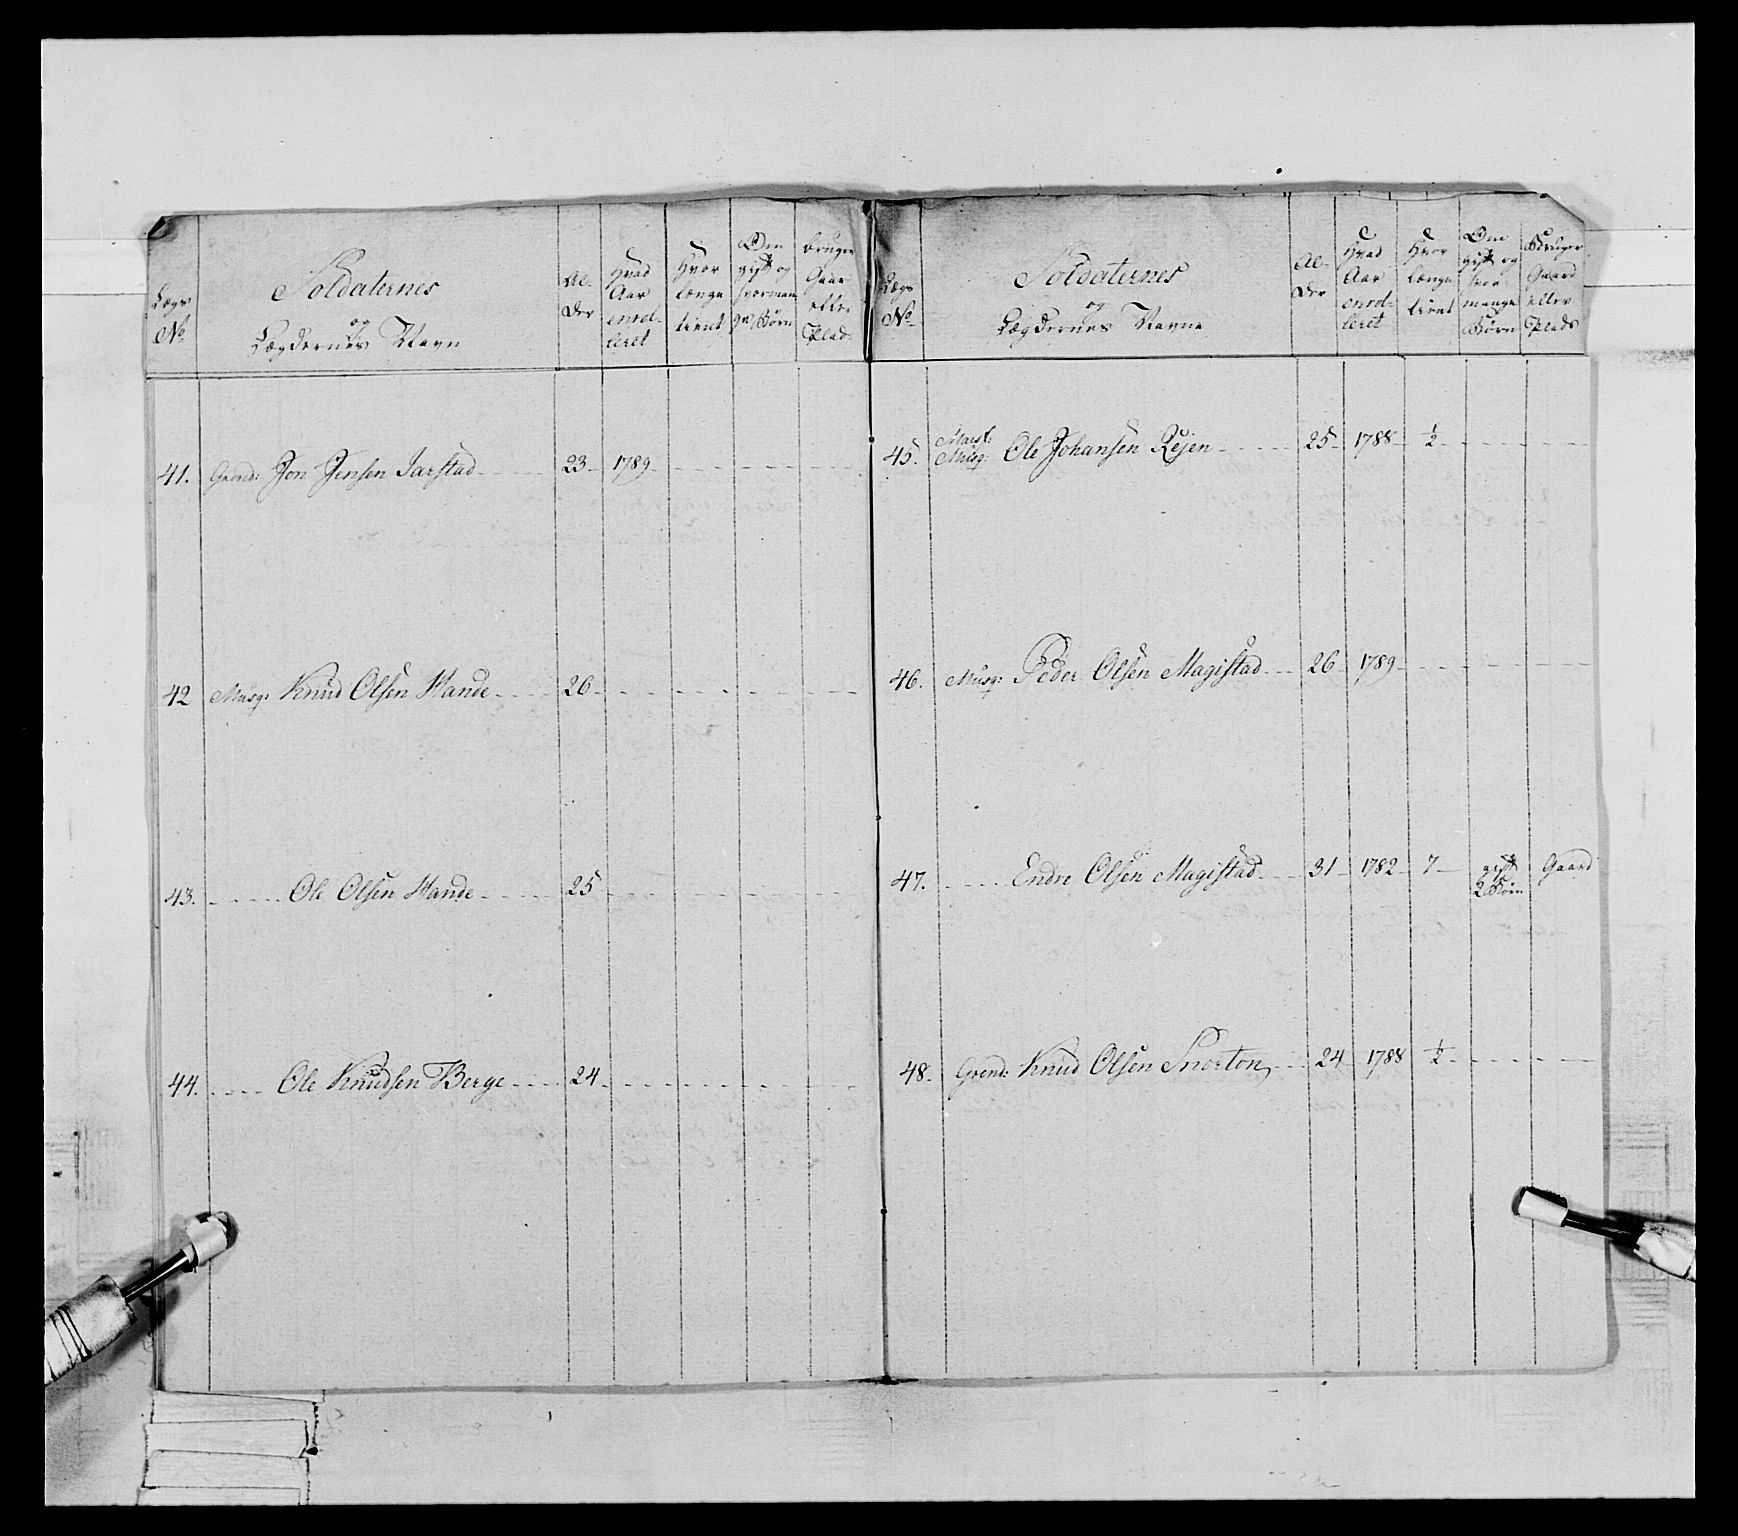 Lægs No | Soldaternes og Lægdernes Navn | Al- der | Hvad Aar enrol- leret | Hvor længe tient | Om gift og hvorman ge Børn | bruger Gaar eller Plad
41. Grend: Jon Jensen Jarstad 23 1789
42 Musq: Knud Olsen Hande 26
43. Ole Olsen Hande 25
44. Ole Knudsen Berge 24
Lægs No | Soldaternes og Lægdernes Navne | Al- der | Hvad Aar enrol- leret | Hvor længe tient | Om gift og hvor mange Børn | Bruger Gaard eller Plads
45. Musq: Ole Johansen Rejen 25 1788 ½
46. Musq: Peder Olsen Magistad 26 1789
47. Endre Olsen Magistad 31 1782 7 gift 2 Børn Gaard
48. Grend: Knud Olsen Snorton 24 1788 ½